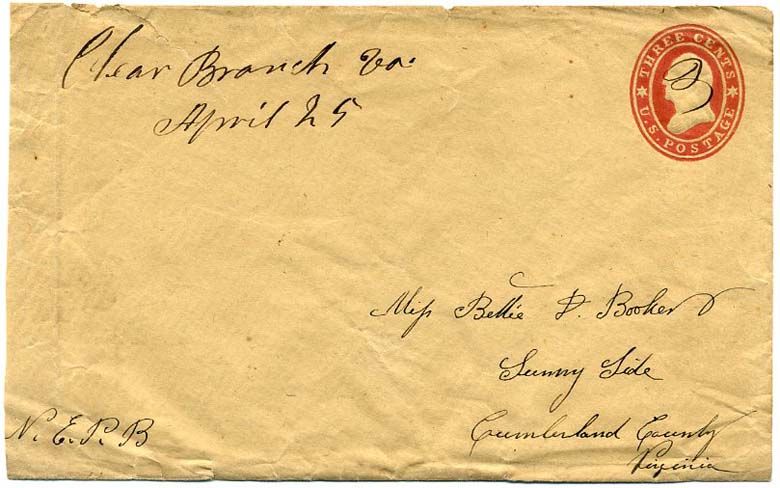 Clear Branch Va.
April 25
THREE CENTS
U.S. POSTAGE
3
Miss Bettie P. Booker
Sunny Side
Cumberland County
Virginia
N. E. P. B